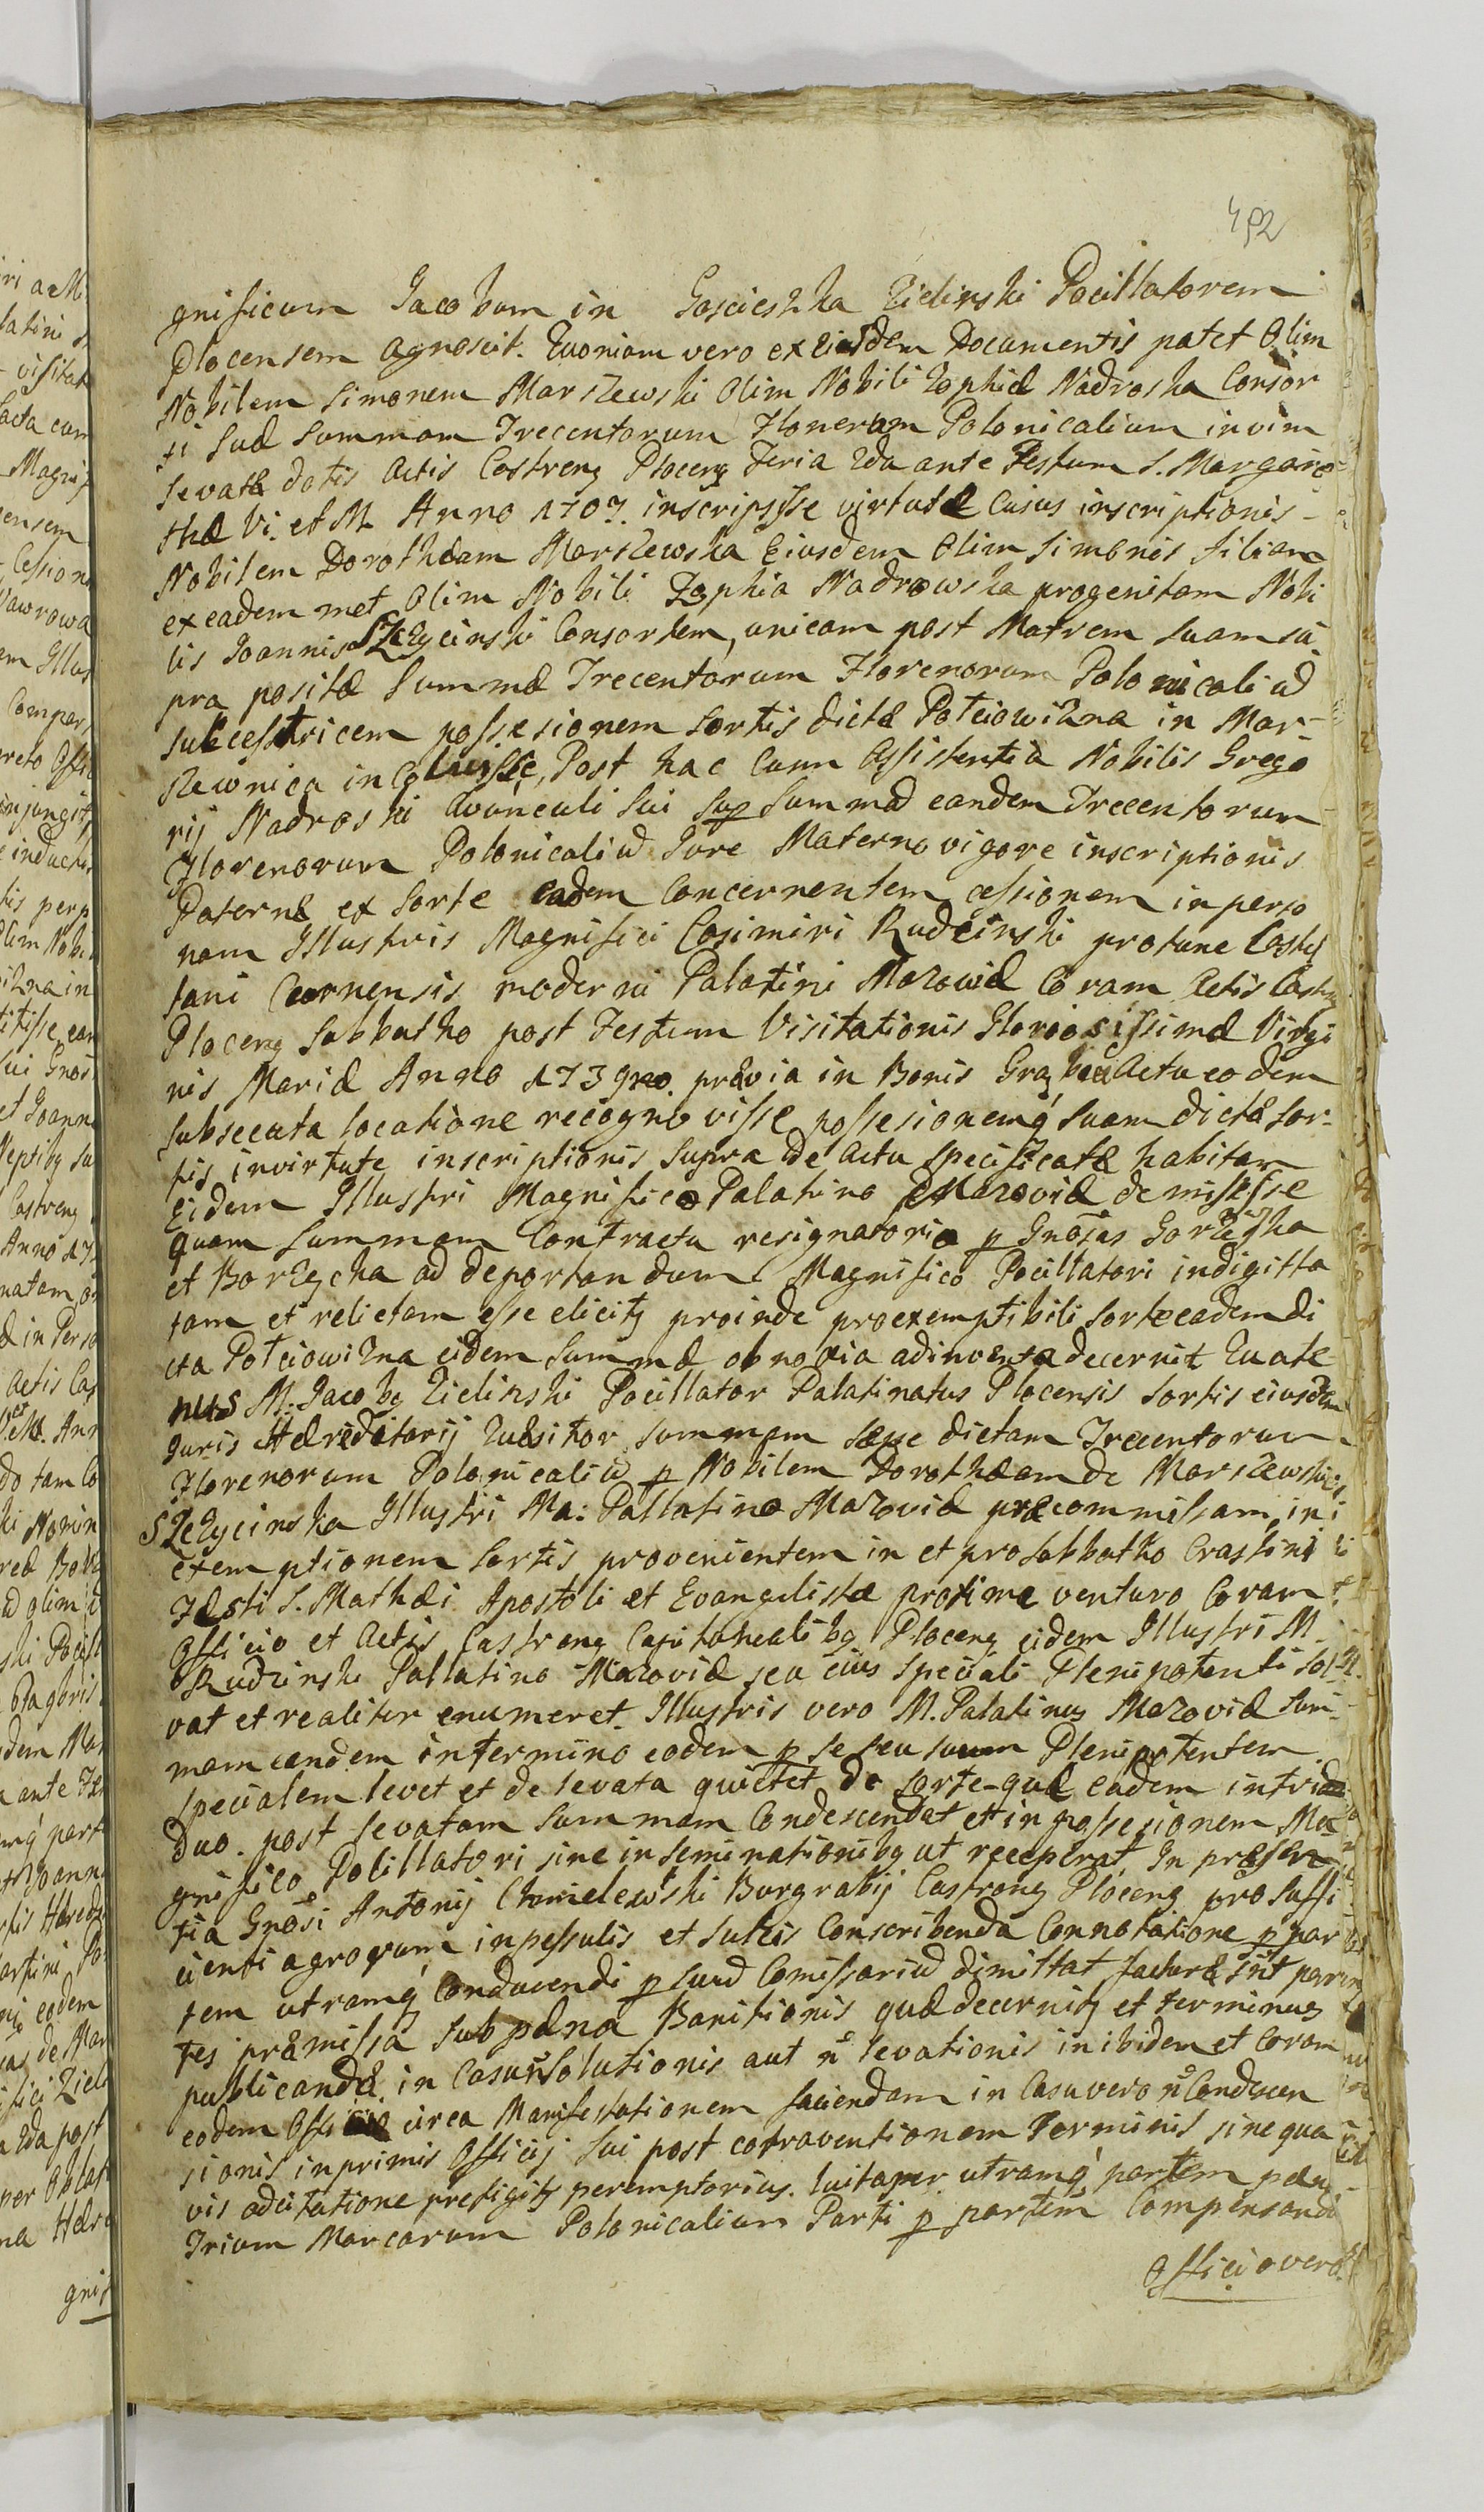 492
gnificum Jacobum in Goscieszka Zielinski Pocillatorem
Plocensem agnoscit. Quoniam vero ex eiusdem Documentis patet Olim
Nobilem Simonem Marszewski Olim Nobili Zophiæ Nadroska Consor
ti Suæ Summam Trecentorum Florenorum Polonicalium in vim
levatæ dotis Actis Castreng Ploceng Feria 2da ante Festum S. Margare
thæ Vi. et M. Anno 1707. inscripsisse virtutæ Cuius inscriptionis
Nobilem Dorotheam Marszewska Eiusdem Olim Simonis filiam
ex eadem met Olim Nobili Zophia Nadrowska progenitam Nobi
lis Joannis Szczycinski Consortem, unicam post Matrem suam su
pra positæ Summæ Trecentorum Florenorum Polonicaliũ
Successtricem possesionem Sortis dictæ Potciowizna in Mar
szewnica incoluisse, Post hac Cum Assistentia Nobilis Grego
rij Nadroski Avunculi Sui sup Summã eandem Trecentorum
Florenorum Polonicaliũ Jure Materno vigore inscriptionis
Paternæ ex Sorte eadem Concernentem cessionem in perso
nam Illustris Magnifici Casimiri Rudzinski protunc Castel
lani Czernensis moderni Palatini Mazoviæ Coram Actis Castreng
Ploceng Sabbatho post Festum Visitationis Gloriosissimæ Virgi
nis Mariæ Anno 1739no. prævia in Bonis Actu eodem
subsecuta locatione recognovisse possesionemq́ suam dictæ Sor
tis in virtute inscriptionis supra de Actu specificatæ habitam
Eidem Illustri Magnifico Palatino Mazoviæ demisisse
Quam Summam Contractu resignatorio p Gnosas Gorzęska
et Borzęcka ad deportandum Magnifico Pocillatori indigitta
tam et relictam esse elicitq proinde pro exemptibili Sorte eadem di
cta Potciowizna eidem Summæ obnoxia adinventa decernit Quate
nus M. Jacobq Zielinski Pocillator Palatinatus Plocensis Sortis eiusdem
Juris Hæreditarij Quæsitor Summam Sæpe dictam Trecentorum
Florenorum Polonicaliũ p Nobilem Dorothæam de Marszewskie
Szczycinska Illustri Ma: Pallatino Mazoviæ præcommissam, in
exemptionem Sortis provenientem in et pro Sabbatho Crastini
Fæsti S. Mathæi Apostoli et Evangelistæ proxime venturo Coram
Officio et Actis Castreng Capitanealibq Ploceng eidem Illustri M.
Rudzinski Pallatino Mazoviæ seu eius Speciali Plenipotenti Sol
vat et realiter enumeret. Illustris vero M. Palatinus Mazoviæ Sum
mam eandem in termino eodem p se seu suum Plenipotentem
specialem levet et de levata quietet de Sorte quæ eadem intri
duo post levatam Summam Condescendat et in possesionem Ma
gnifico Pocillatori sine inseminationibq ut receperat, In præsen
tia Gnosi Antonij Chmielewski Burgrabij Castreng Ploceng pro suffi
cienti agrorum in pessulis et Sulcis Conscribenda Connotatione p par
tem utramq́ Conducendi p suũ Comissariũ dimittat, facturæ sint par
tes præmissa sub pæna Banitionis quæ decernitq et terminus
publicandæ in Casu nõ Solutionis aut nõ levationis in ibidem et Coram
eodem Officio circa Manifestationem faciendam in Casu vero nõ Condescen
sionis in primis Officij sui post cotraventionem Terminis sine qua
vis adcitatione prefigitq peremptorius. luitaper utramq́ partem pæna
Trium Marcarum Polonicalium Parti p partem Compensand
Officio vero